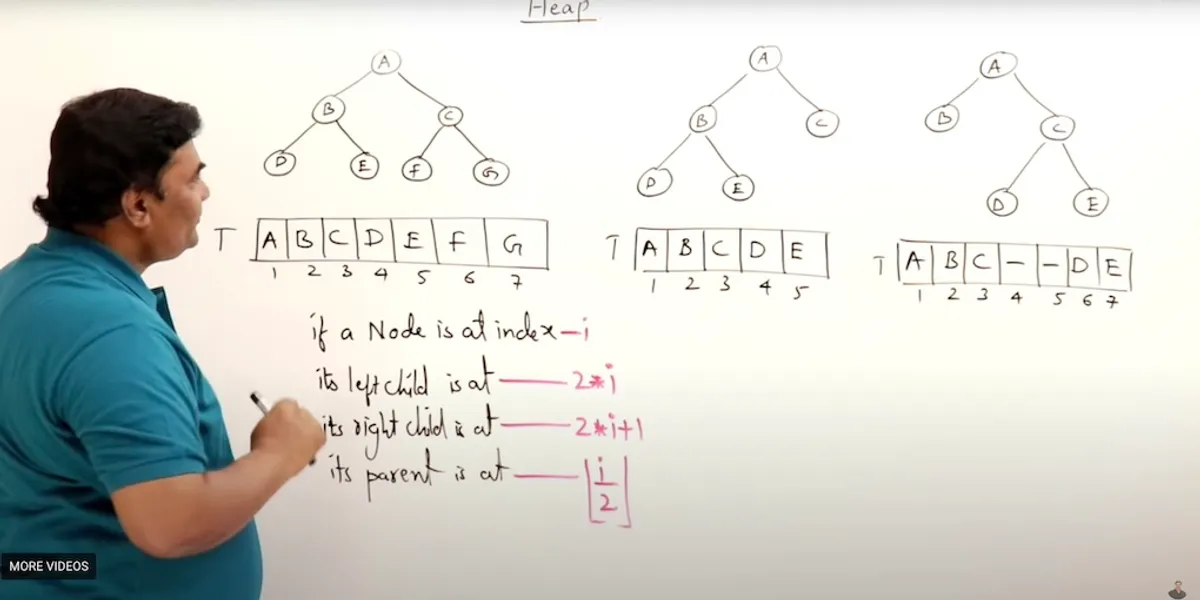 Heap
A
B
C
D
E
F
G
A
B
C
D
E
A
B
C
D
E
T A B C D E F G
1 2 3 4 5 6 7
T A B C D E
1 2 3 4 5
T A B C - - D E
1 2 3 4 5 6 7
if a Node is at index - i
its left child is at —— 2*i
its right child is at —— 2*i+1
its parent is at —— ⌊i/2⌋
MORE VIDEOS